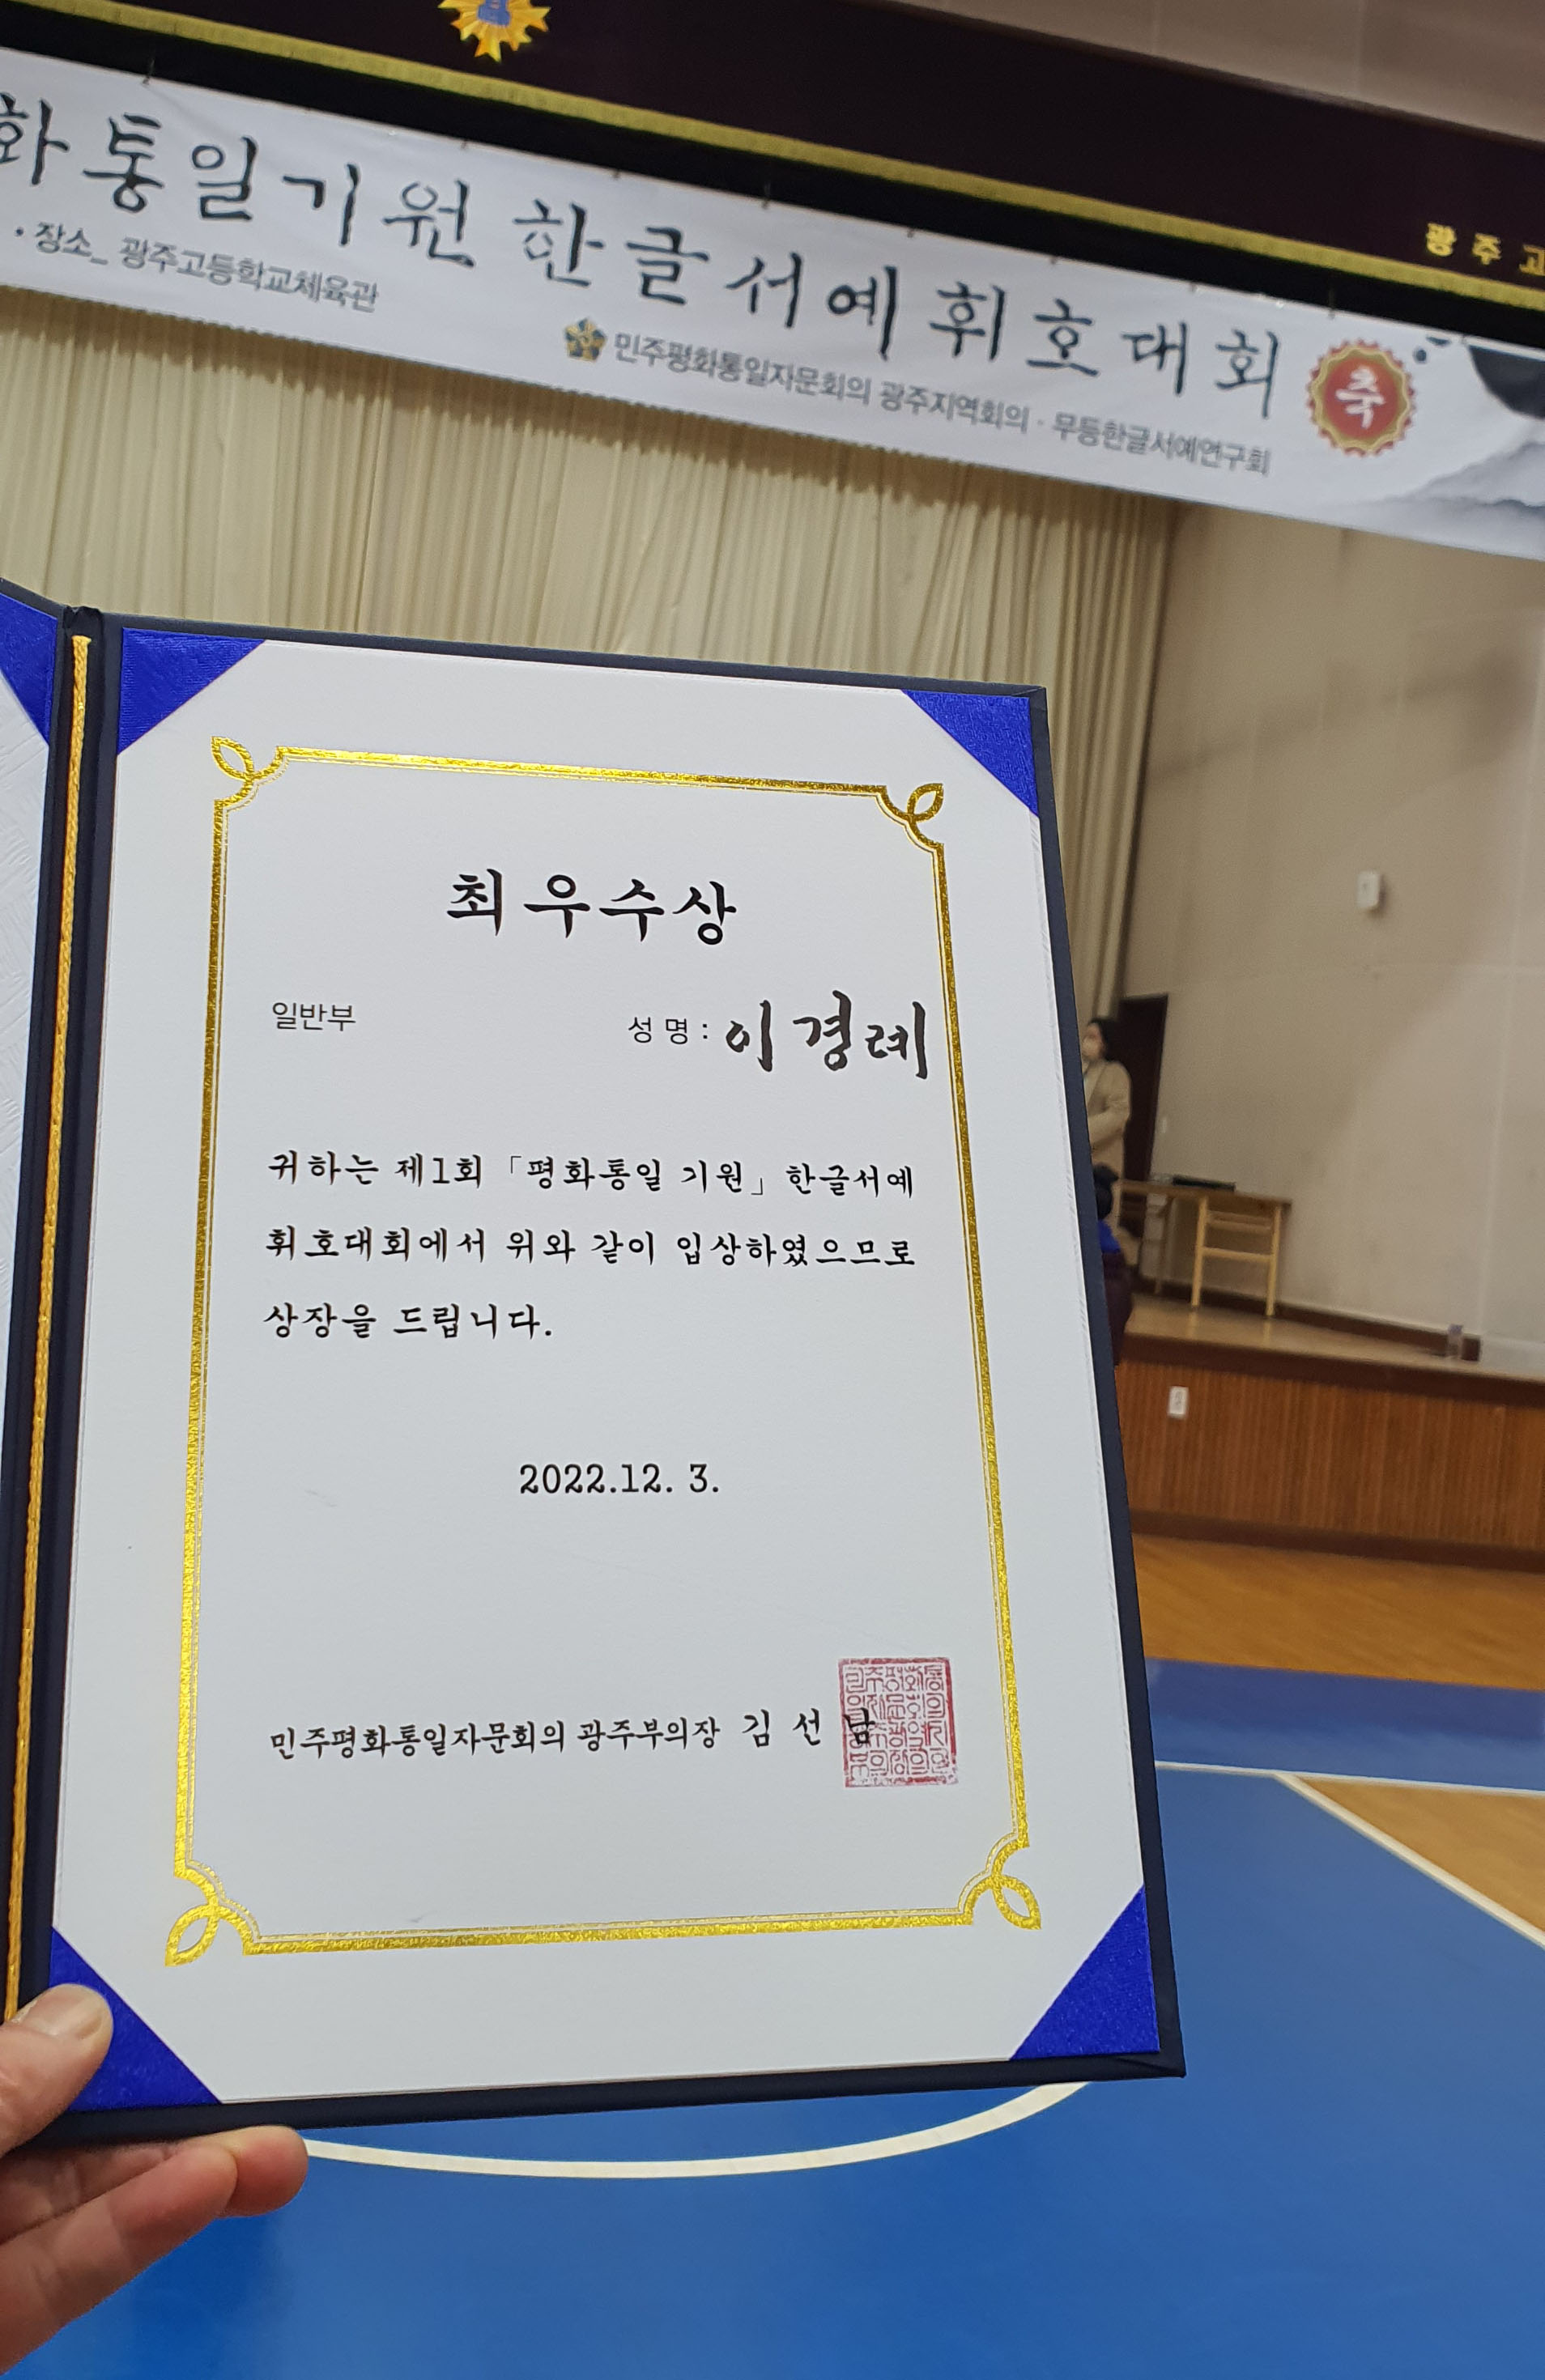 화통일기원 한글서예휘호대회
• 장소_ 광주고등학교체육관
민주평화통일자문회의 광주지역회의 · 무등한글서예연구회
축
광주고
최우수상
일반부
성 명 : 이경례
귀하는 제1회 「평화통일 기원」 한글서예
휘호대회에서 위와 같이 입상하였으므로
상장을 드립니다.
2022.12. 3.
민주평화통일자문회의 광주부의장 김 선 남